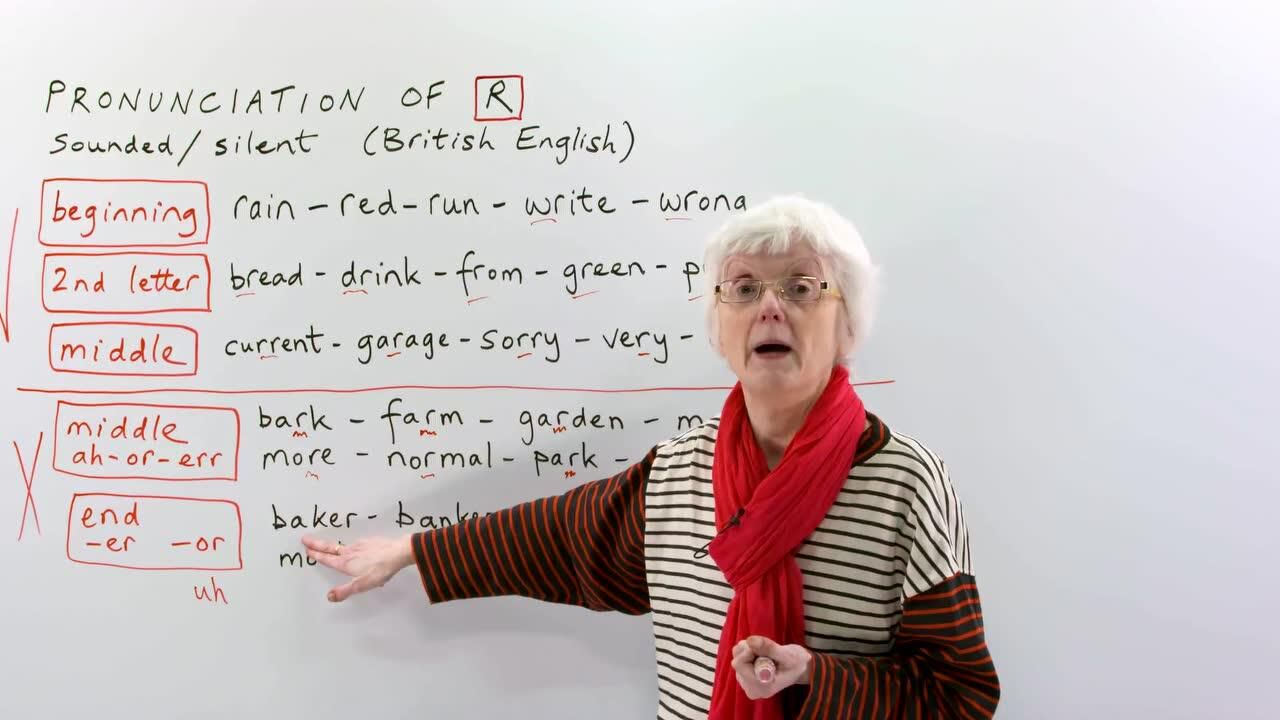 PRONUNCIATION OF R
sounded/silent (British English)
beginning rain - red - run - write - wrong
2nd letter bread - drink - from - green -
middle current - garage - sorry - very -
middle bark - farm - garden -
ah-or-err more - normal - park -
end baker - banker
-er -or
uh